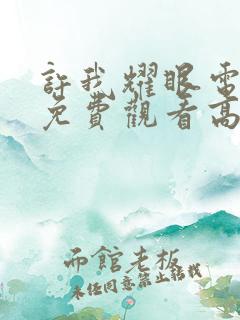 許我耀眼電
免費觀看高
帘館老板
未經同意禁止轉載